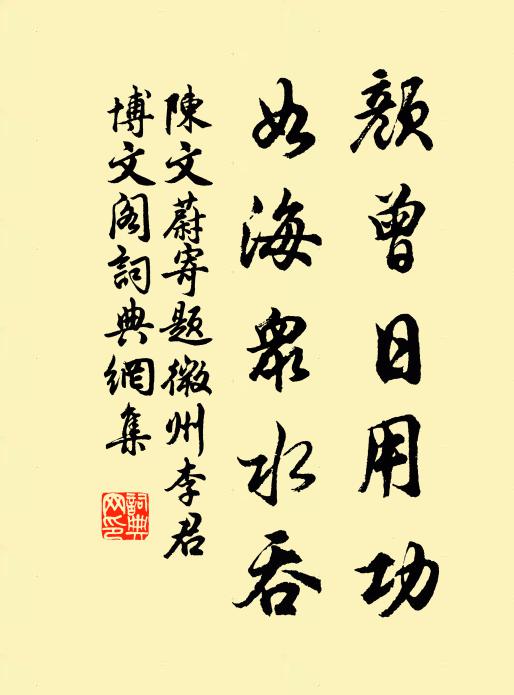 顏曾日用功
如海衆水吞
陳文蔚寄題徽州李君
博文閣詞典網集
詞典網印